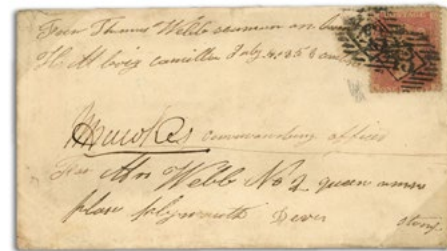 From Thomas Webb seaman on board
H M brig camilla July 4 1858
commanding officer
For Mrs Webb No 2 queen anns
place plymouth Devon